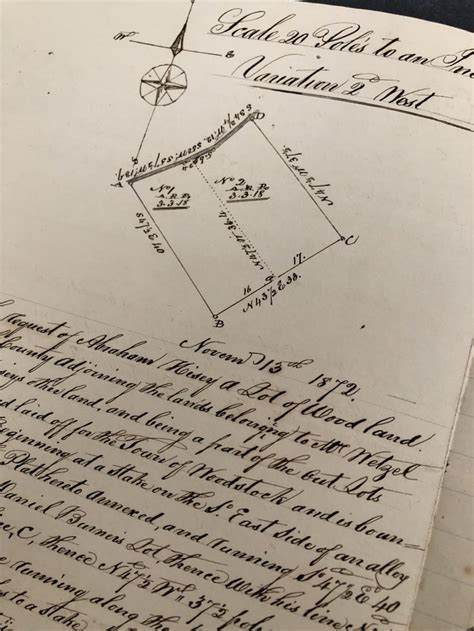 Scale 20 Poles to an In
Variation 2° West
W
E
A
D
No 1
A. R. P.
3.3.18
No 2
A. R. P.
3.3.18
C
16
17.
N 43½ E 33.
B
Novem 15th 1872.
Request of Abraham Hisey a Lot of Wood land
County Adjoining the lands belonging to Mr Wetzel
seys other land, and being a part of the out Lots
d laid off for the Town of Woodstock and is boun
Beginning at a Stake on the So East Side of an alley
Plat hereto Annexed, and running So 47½ E 40
Daniel Binners Lot, thence With his line No
ce, C, thence N 47½ W 37½ pole
running along the
to a Stake